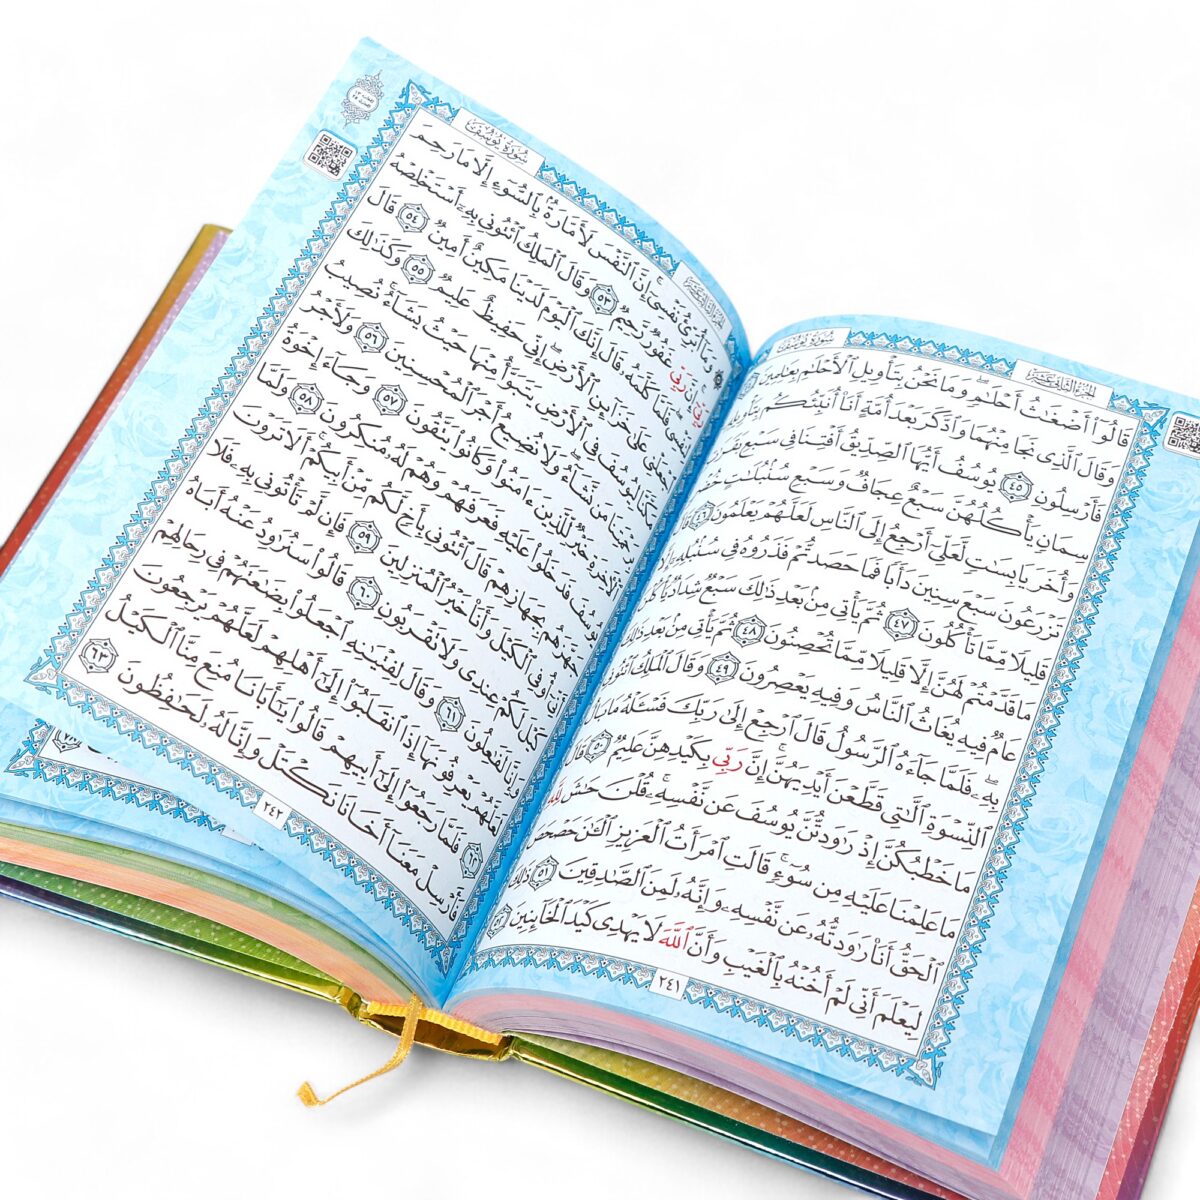 سُورَةُ يُوسُفَ
الجُزْءُ الثَّانِي عَشَرَ
قَالُوٓاْ أَضْغَٰثُ أَحْلَٰمٖۖ وَمَا نَحْنُ بِتَأْوِيلِ ٱلْأَحْلَٰمِ بِعَٰلِمِينَ
وَقَالَ ٱلَّذِي نَجَا مِنْهُمَا وَٱدَّكَرَ بَعْدَ أُمَّةٍ أَنَا۠ أُنَبِّئُكُم بِتَأْوِيلِهِۦ
فَأَرْسِلُونِ ٤٥ يُوسُفُ أَيُّهَا ٱلصِّدِّيقُ أَفْتِنَا فِي سَبْعِ بَقَرَٰتٖ
سِمَانٖ يَأْكُلُهُنَّ سَبْعٌ عِجَافٞ وَسَبْعِ سُنۢبُلَٰتٍ خُضْرٖ
وَأُخَرَ يَابِسَٰتٖ لَّعَلِّيٓ أَرْجِعُ إِلَى ٱلنَّاسِ لَعَلَّهُمْ يَعْلَمُونَ ٤٦
تَزْرَعُونَ سَبْعَ سِنِينَ دَأَبٗا فَمَا حَصَدتُّمْ فَذَرُوهُ فِي سُنۢبُلِهِۦٓ إِلَّا
قَلِيلٗا مِّمَّا تَأْكُلُونَ ٤٧ ثُمَّ يَأْتِي مِنۢ بَعْدِ ذَٰلِكَ سَبْعٞ شِدَادٞ يَأْكُلْنَ
مَا قَدَّمْتُمْ لَهُنَّ إِلَّا قَلِيلٗا مِّمَّا تُحْصِنُونَ ٤٨ ثُمَّ يَأْتِي مِنۢ بَعْدِ ذَٰلِكَ
عَامٞ فِيهِ يُغَاثُ ٱلنَّاسُ وَفِيهِ يَعْصِرُونَ ٤٩ وَقَالَ ٱلْمَلِكُ ٱئْتُونِي
بِهِۦۖ فَلَمَّا جَآءَهُ ٱلرَّسُولُ قَالَ ٱرْجِعْ إِلَىٰ رَبِّكَ فَسْـَٔلْهُ مَا بَالُ
ٱلنِّسْوَةِ ٱلَّٰتِي قَطَّعْنَ أَيْدِيَهُنَّۚ إِنَّ رَبِّي بِكَيْدِهِنَّ عَلِيمٞ ٥٠ قَالَ
مَا خَطْبُكُنَّ إِذْ رَٰوَدتُّنَّ يُوسُفَ عَن نَّفْسِهِۦۚ قُلْنَ حَٰشَ لِلَّهِ
مَا عَلِمْنَا عَلَيْهِ مِن سُوٓءٖۚ قَالَتِ ٱمْرَأَتُ ٱلْعَزِيزِ ٱلْـَٰٔنَ حَصْحَصَ
ٱلْحَقُّ أَنَا۠ رَٰوَدتُّهُۥ عَن نَّفْسِهِۦ وَإِنَّهُۥ لَمِنَ ٱلصَّٰدِقِينَ ٥١ ذَٰلِكَ
لِيَعْلَمَ أَنِّي لَمْ أَخُنْهُ بِٱلْغَيْبِ وَأَنَّ ٱللَّهَ لَا يَهْدِي كَيْدَ ٱلْخَآئِنِينَ ٥٢
٢٤١
سُورَةُ يُوسُفَ
۞ وَمَآ أُبَرِّئُ نَفْسِيٓۚ إِنَّ ٱلنَّفْسَ لَأَمَّارَةُۢ بِٱلسُّوٓءِ إِلَّا مَا رَحِمَ
رَبِّيٓۚ إِنَّ رَبِّي غَفُورٞ رَّحِيمٞ ٥٣ وَقَالَ ٱلْمَلِكُ ٱئْتُونِي بِهِۦٓ أَسْتَخْلِصْهُ
لِنَفْسِيۖ فَلَمَّا كَلَّمَهُۥ قَالَ إِنَّكَ ٱلْيَوْمَ لَدَيْنَا مَكِينٌ أَمِينٞ ٥٤ قَالَ
ٱجْعَلْنِي عَلَىٰ خَزَآئِنِ ٱلْأَرْضِۖ إِنِّي حَفِيظٌ عَلِيمٞ ٥٥ وَكَذَٰلِكَ
مَكَّنَّا لِيُوسُفَ فِي ٱلْأَرْضِ يَتَبَوَّأُ مِنْهَا حَيْثُ يَشَآءُۚ نُصِيبُ
بِرَحْمَتِنَا مَن نَّشَآءُۖ وَلَا نُضِيعُ أَجْرَ ٱلْمُحْسِنِينَ ٥٦ وَلَأَجْرُ
ٱلْأٓخِرَةِ خَيْرٞ لِّلَّذِينَ ءَامَنُواْ وَكَانُواْ يَتَّقُونَ ٥٧ وَجَآءَ إِخْوَةُ
يُوسُفَ فَدَخَلُواْ عَلَيْهِ فَعَرَفَهُمْ وَهُمْ لَهُۥ مُنكِرُونَ ٥٨ وَلَمَّا
جَهَّزَهُم بِجَهَازِهِمْ قَالَ ٱئْتُونِي بِأَخٖ لَّكُم مِّنْ أَبِيكُمْۚ أَلَا تَرَوْنَ
أَنِّيٓ أُوفِي ٱلْكَيْلَ وَأَنَا۠ خَيْرُ ٱلْمُنزِلِينَ ٥٩ فَإِن لَّمْ تَأْتُونِي بِهِۦ فَلَا
كَيْلَ لَكُمْ عِندِي وَلَا تَقْرَبُونِ ٦٠ قَالُواْ سَنُرَٰوِدُ عَنْهُ أَبَاهُ
وَإِنَّا لَفَٰعِلُونَ ٦١ وَقَالَ لِفِتْيَٰنِهِ ٱجْعَلُواْ بِضَٰعَتَهُمْ فِي رِحَالِهِمْ
لَعَلَّهُمْ يَعْرِفُونَهَآ إِذَا ٱنقَلَبُوٓاْ إِلَىٰٓ أَهْلِهِمْ لَعَلَّهُمْ يَرْجِعُونَ
٦٢ فَلَمَّا رَجَعُوٓاْ إِلَىٰٓ أَبِيهِمْ قَالُواْ يَٰٓأَبَانَا مُنِعَ مِنَّا ٱلْكَيْلُ
فَأَرْسِلْ مَعَنَآ أَخَانَا نَكْتَلْ وَإِنَّا لَهُۥ لَحَٰفِظُونَ ٦٣
٢٤٢